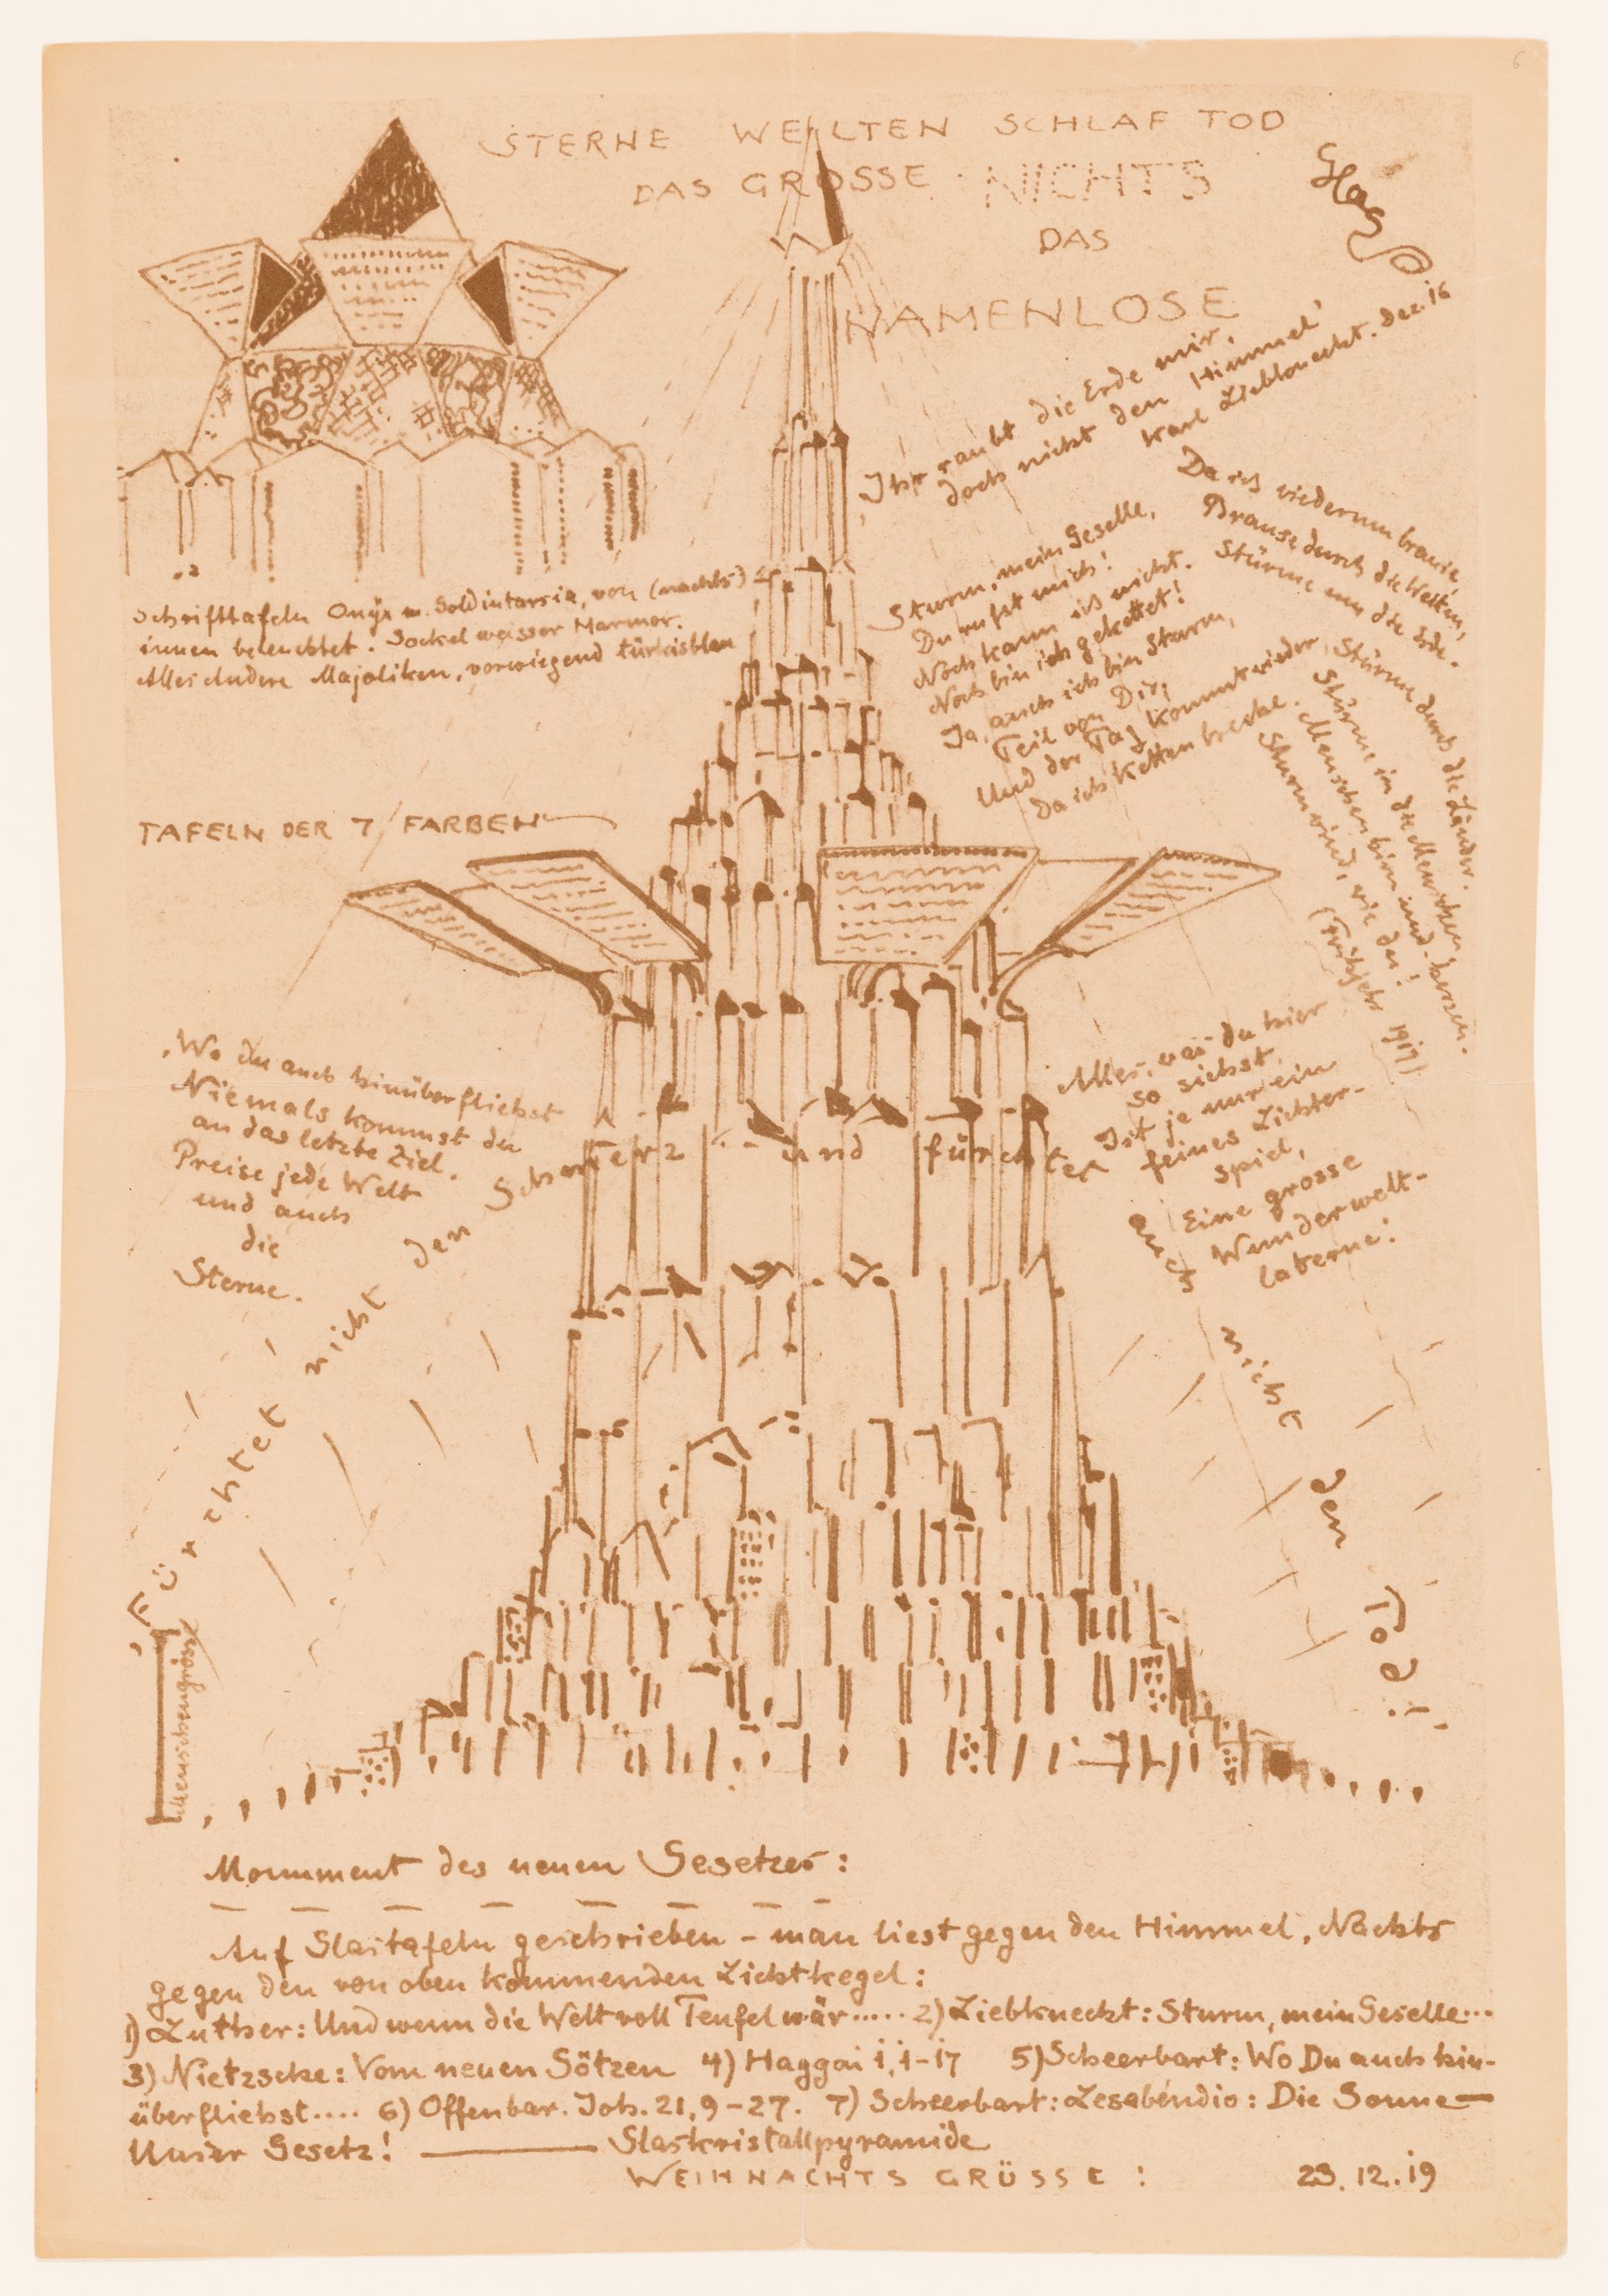 STERNE WELTEN SCHLAF TOD
DAS GROSSE NICHTS
DAS
NAMENLOSE
Glas
Ihr raubt die Erde mir,
doch nicht den Himmel
Karl Liebknecht. Dez. 16
Schrifttafeln Onyx m. Goldintarsia, von (nachts)
innen beleuchtet. Sockel weisser Marmor.
Alles Andere Majoliken, vorwiegend türkisblau
Sturm, mein Geselle,
Du rufst mich!
Noch kann ich nicht.
Noch bin ich gekettet!
Ja, auch ich bin Sturm,
Teil von Dir,
Und der Tag kommt wieder
Da ich Ketten breche.
Da ich wiederum brause,
Brause durch die Welten,
Stürme um die Erde.
Stürme durch die Länder.
Stürme in die Menschen,
Menschenhirn und -herzen.
Sturmwind, wie du!
(Frühjahr 1917)
TAFELN DER 7 FARBEN
Wo du auch hinüberfliehst
Niemals kommst du
an das letzte Ziel.
Preise jede Welt
und auch
die
Sterne.
Alles, was du hier
so siehst,
Ist ja nur ein
feines Lichter-
spiel,
Eine grosse
Wunderwelt-
laterne!
"Fürchtet nicht den Schmerz - und fürchtet auch nicht den Tod!"
Menschengrösse
Monument des neuen Gesetzes:
Auf Glastafeln geschrieben - man liest gegen den Himmel, Nachts
gegen den von oben kommenden Lichtkegel:
1) Luther: Und wenn die Welt voll Teufel wär..... 2) Liebknecht: Sturm, mein Geselle...
3) Nietzsche: Vom neuen Götzen 4) Haggai 1, 1-17 5) Scheerbart: Wo Du auch hin-
überfliehst.... 6) Offenbar. Joh. 21, 9-27. 7) Scheerbart: Lesabéndio: Die Sonne —
Unser Gesetz! — Glaskristallpyramide
WEIHNACHTS GRÜSSE!
23.12.19
6